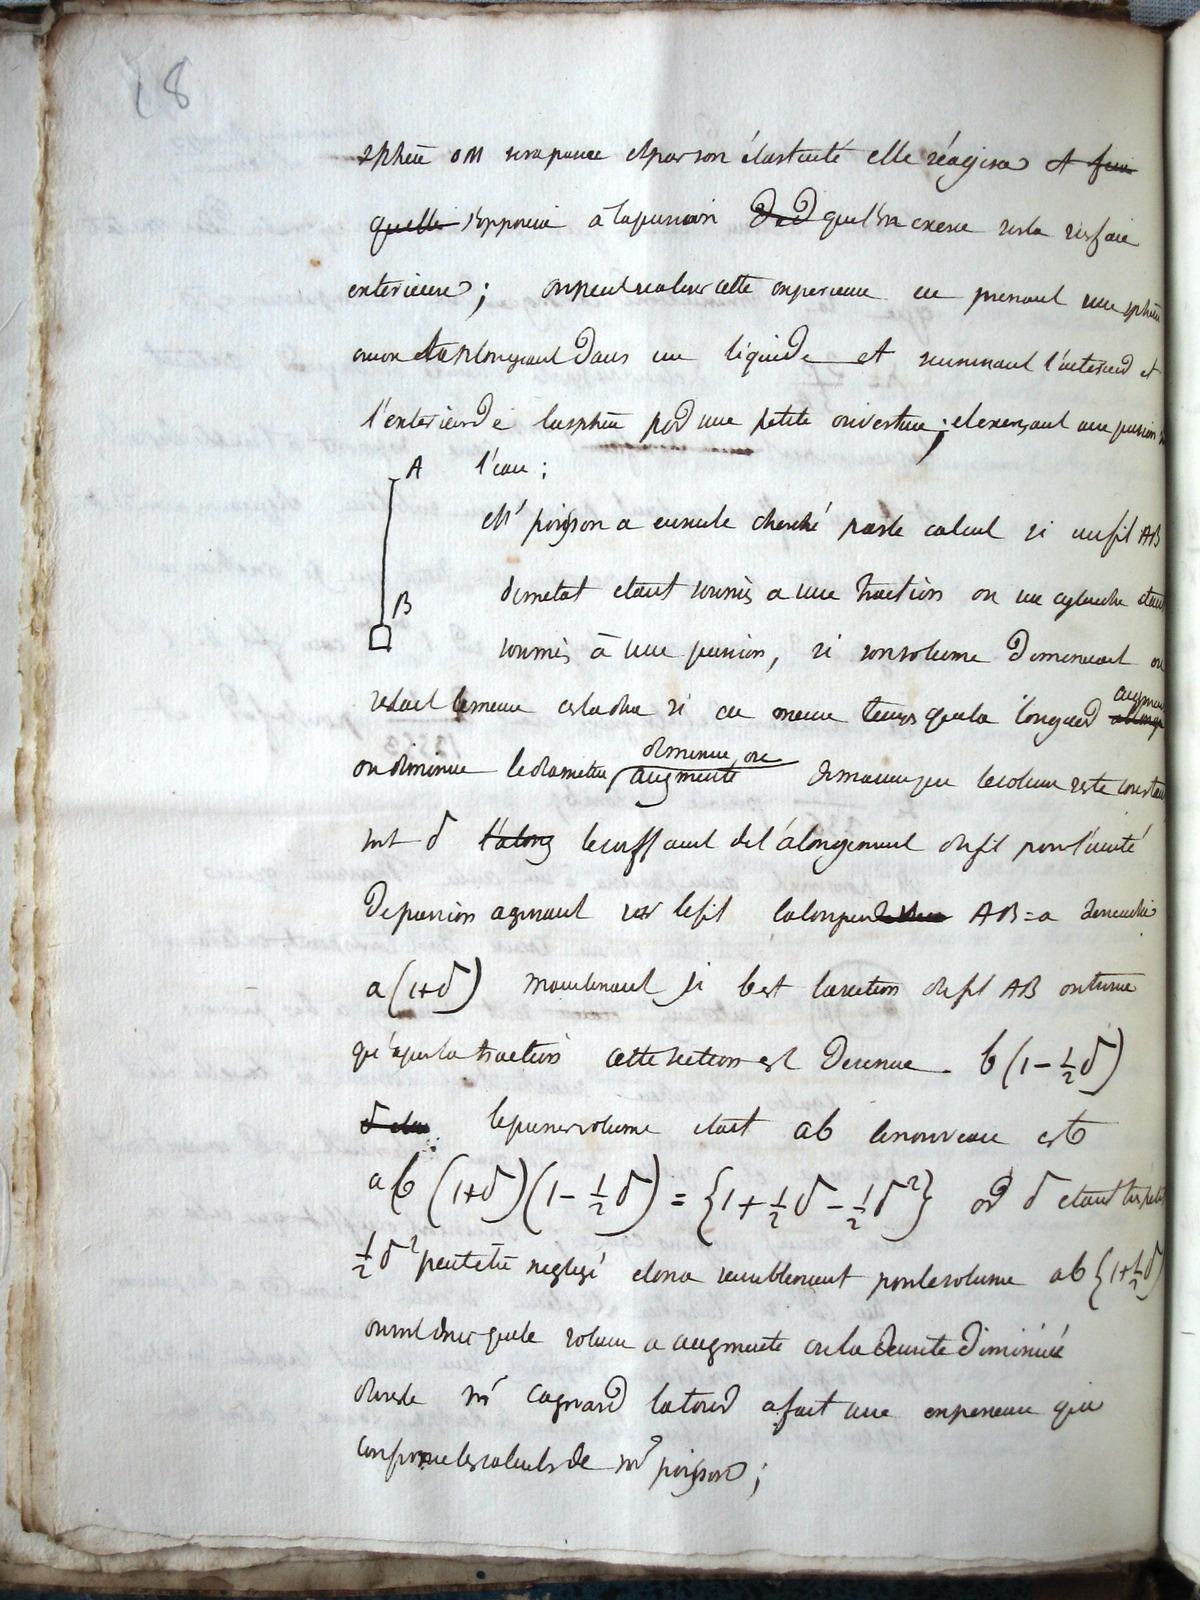 18
sphère on sera pressée et par son élasticité elle réagira et
quelle s'oppose à la pression qu'elle exerce sur la surface
exterieure ; on peut realiser cette experience en prenant une sphère
creuse et la plongeant dans un liquide et reunissant l'interieur et
l'exterieur de la sphère par une petite ouverture ; et exerçant une pression
A l'eau ;
Mr poisson a ensuite cherché par le calcul si un fil AB
de metal etant soumis a une traction ou un cylindre etant
B
soumis à une pression, si son volume diminuait ou
restait le meme cela dire si en meme temps que la longueur augmente
on diminue le diametre, diminue ou augmente de maniere que le volume reste constant
soit δ l'along le coefficient de l'alongement du fil pour l'unité
de pression agissant sur le fil la longueur AB = a deviendra
a (1+δ) maintenant si b est la section du fil AB on trouve
qu'après la traction cette section est devenue b (1 - ½δ)
le premier volume etait ab le nouveau est
ab (1+δ)(1 - ½δ) = {1 + ½δ - ½δ²} or δ etant très petit
½δ² peut etre negligé et on a sensiblement pour le volume ab {1+½δ}
on voit donc que le volume a augmenté ou la densité diminuée
du reste Mr cagniard latour a fait une experience qui
confirme les calculs de Mr poisson ;